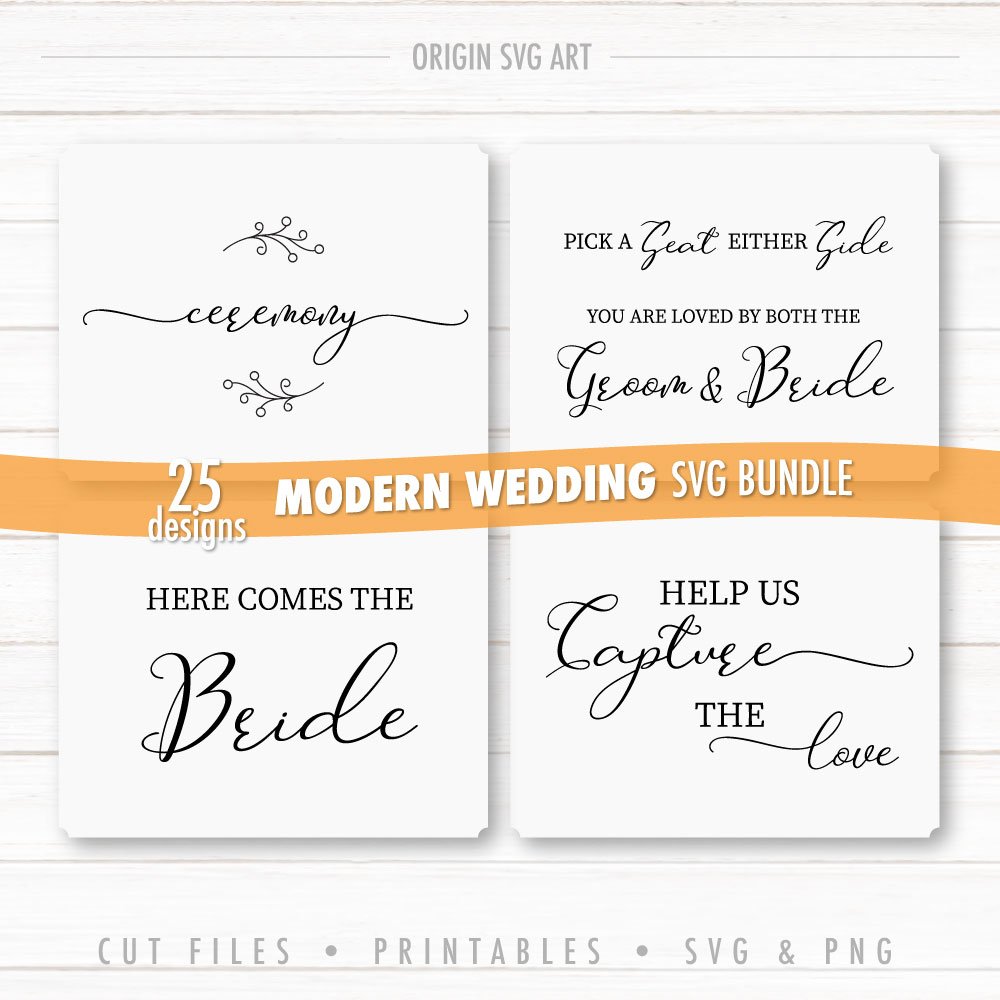 ORIGIN SVG ART
ceremony
PICK A Seat EITHER Side
YOU ARE LOVED BY BOTH THE
Groom & Bride
25
designs
MODERN WEDDING SVG BUNDLE
HERE COMES THE
Bride
HELP US
Capture
THE
love
CUT FILES • PRINTABLES • SVG & PNG